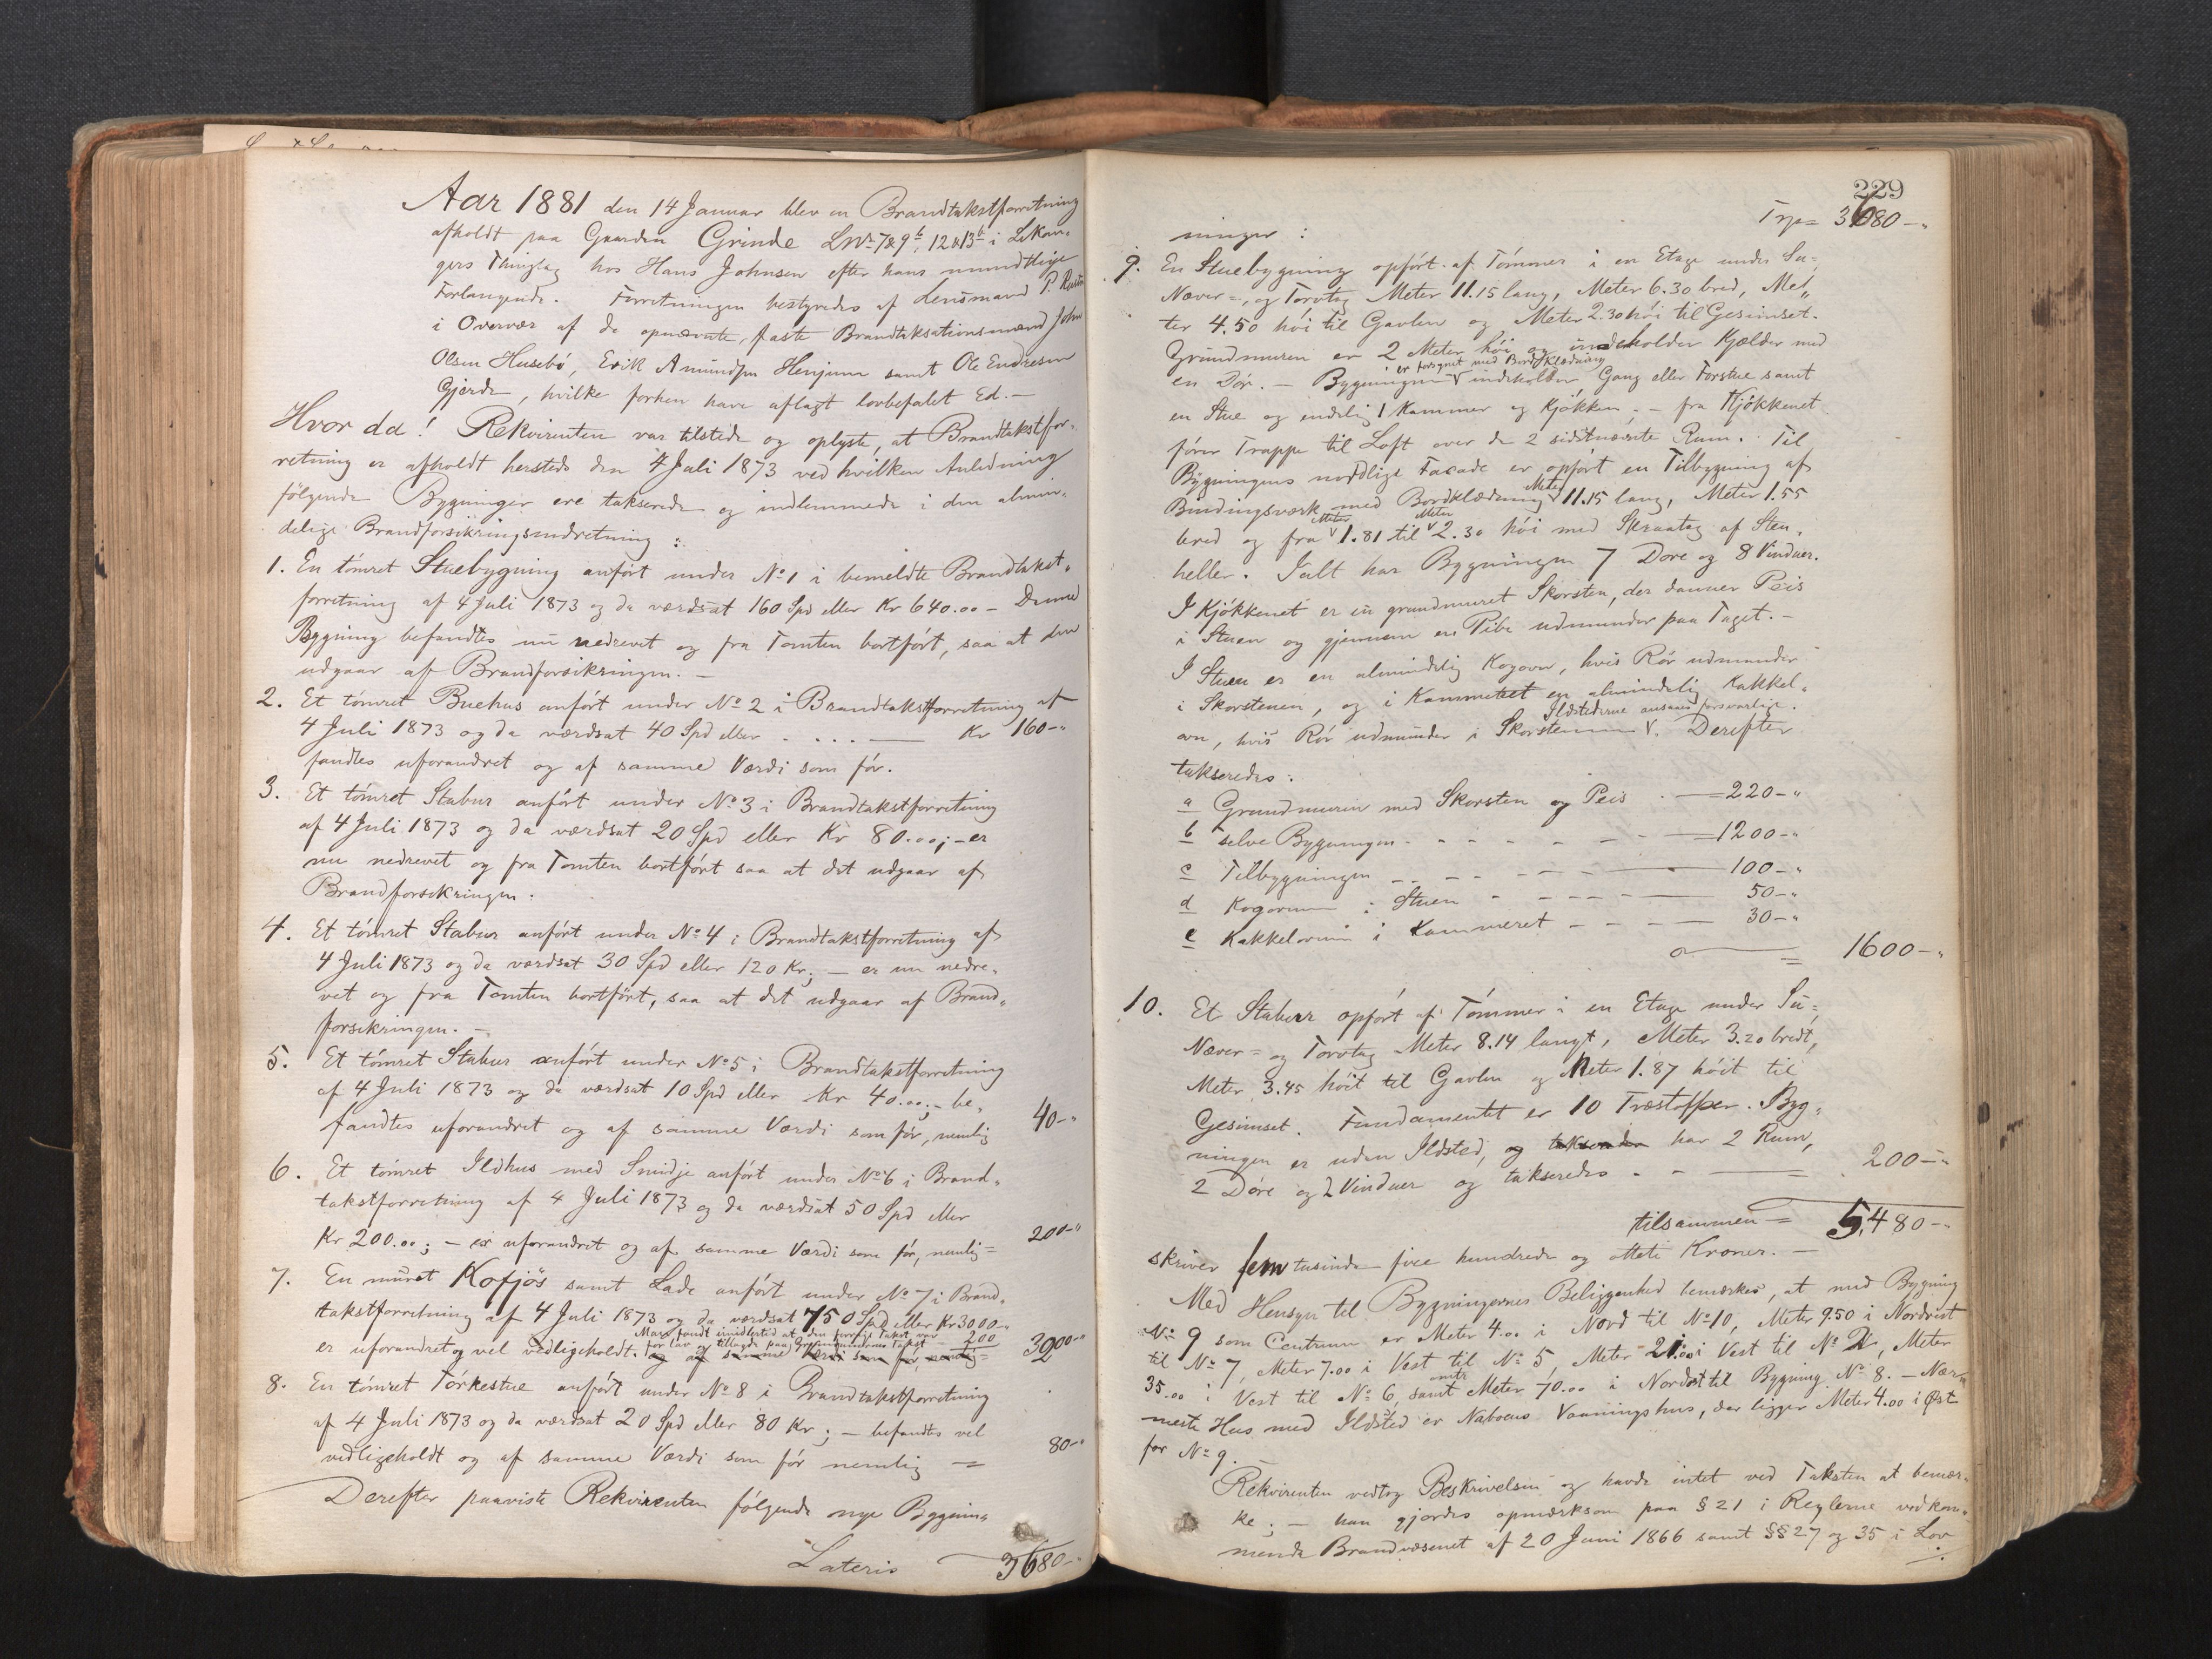 Aar 1881 den 14 Januar blev en Brandtakstforretning
afholdt paa Gaarden Grinde LNr 7 & 9b, 12 & 13b i Lekan-
gers Thinglag hos Hans Johnsen efter hans mundtlige
Forlangende. Forretningen bestyredes af Lensmand P.
i Overvær af de opnævnte, faste Brandtaksationsmænd John
Olsen Husebö, Erik Amundsen Henjum samt Ole Endresen
Gjerde, hvilke forhen have aflagt lovbefalet Ed. —
Hvor da! Rekvirenten var tilstede og oplyste, at Brandtakstfor-
retning er afholdt hersteds den 4 Juli 1873 ved hvilken Anledning
følgende Bygninger ere takserede og indlemmede i den almin-
delige Brandforsikringsindretning :
1. En tömret Stuebygning anfört under No 1 i bemeldte Brandtakst-
forretning af 4 Juli 1873 og da værdsat 160 Spd eller Kr 640.00 - Denne
Bygning befandtes nu nedrevet og fra Tomten bortfört, saa at den
udgaar af Brandforsikringen. —
2. Et tömret Buehus anfört under No 2 i Brandtakstforretning af
4 Juli 1873 og da værdsat 40 Spd eller . . . . — Kr 160-"
fandtes uforandret og af samme Værdi som för.
3. Et tömret Stabur anfört under No 3 i Brandtakstforretning
af 4 Juli 1873 og da værdsat 20 Spd eller Kr 80.00; - er
nu nedrevet og fra Tomten bortfört saa at det udgaar af
Brandforsikringen.
4. Et tömret Stabur anfört under No 4 i Brandtakstforretning af
4 Juli 1873 og da værdsat 30 Spd eller 120 Kr; — er nu nedre-
vet og fra Tomten bortfört, saa at det udgaar af Brand-
forsikringen. —
5. Et tömret Stabur anfört under No 5 i Brandtakstforretning
af 4 Juli 1873 og da værdsat 10 Spd eller Kr 40.00; - be-
fandtes uforandret og af samme Værdi som för, nemlig 40-"
6. Et tömret Ildhus med Smidje anfört under No 6 i Brand-
takstforretning af 4 Juli 1873 og da værdsat 50 Spd eller
Kr 200.00; — er uforandret og af samme Værdi som för, nemlig = 200-"
7. En muret Kofjös samt Lade anfört under No 7 i Brand-
takstforretning af 4 Juli 1873 og da værdsat 750 Spd eller Kr 3000-"
Man fandt imidlertid at den forrige Takst var
for lav tillagde paa Grundmurens Takst 200
er uforandret og vel vedligeholdt. og af samme Værdi som för, nemlig = 3200-"
8. En tömret Törkestue anfört under No 8 i Brandtakstforretning
af 4 Juli 1873 og da værdsat 20 Spd eller 80 Kr; — befandtes vel
vedligeholdt og af samme Værdi som för nemlig = 80-"
Derefter paaviste Rekvirenten følgende nye Bygnin-
Lateris 3680-"
229
Trp = 3680-"
ninger :
9. En Stuebygning opfört af Tömmer i en Etage under Su-,
Næver-, og Torvtag Meter 11.15 lang, Meter 6.30 bred, Me-
ter 4.50 höi til Gavlen og Meter 2.30 höi til Gesimset.
Grundmuren er 2 Meter höi og indeholder Kjælder med
er forsynet med Bordklædning
en Dör. — Bygningen v indeholder Gang eller Forstue samt
en Stue og endelig 1 Kammer og Kjökken. — fra Kjökkenet
förer Trappe til Loft over de 2 sidstnævnte Rum. Til
Bygningens nordlige Facade er opfört en Tilbygning af
Bindingsværk med Bordklædning Meter 11.15 lang, Meter 1.55
bred og fra Meter 1.81 til Meter 2.30 höi med Skraatag af Sten-
heller. Ialt har Bygningen 7 Dore og 8 Vinduer.
I Kjökkenet er en grundmuret Skorsten, der danner Peis
i Stuen og gjennem en Pibe udmunder paa Taget. —
I Stuen er en almindelig Kogovn, hvis Rör udmunder
i Skorstenen, og i Kammeret en almindelig Kakkel-
Ildstederne ansees forsvarlige.
ovn, hvis Rör udmunder i Skorstenen v. Derefter
takseredes :
a Grundmuren med Skorsten og Peis . — 220-"
b selve Bygningen - - - - - - — 1200-"
c Tilbygningen - - - - - - — 100-"
d Kogovnen i Stuen - - - - - — 50-"
e Kakkelovnen i Kammeret - - - — 30-"
= 1600-"
10. Et Stabur opfört af Tömmer i en Etage under Su-,
Næver- og Torvtag Meter 8.14 langt, Meter 3.20 bredt,
Meter 3.45 höit til Gavlen og Meter 1.87 höit til
Gesimset. Fundamentet er 10 Træstolper. Byg-
ningen er uden Ildsted, og takseredes har 2 Rum,
2 Döre og 2 Vinduer og takseredes - - = 200-"
tilsammen = 5,480-"
skriver fem tusinde fire hundrede og otteti Kroner. —
Med Hensyn til Bygningernes Beliggenhed bemærkes, at med Bygning
No 9 som Centrum er Meter 4.00 i Nord til No 10, Meter 9.50 i Nordvest
til No 7, Meter 7.00 i Vest til No 5, Meter 21.00 i Vest til No 2, Meter
35.00 i Vest til No 6, samt omtr Meter 70.00 i Nordost til Bygning No 8. — Nær-
meste Hus med Ildsted er Naboens Vaaningshus, der ligger Meter 4.00 i Øst
for No 9.
Rekvirenten vedtog Beskrivelsen og havde intet ved Taksten at bemær-
ke; — han gjordes opmærksom paa § 21 i Reglerne vedkom-
mende Brandvæsenet af 20 Juni 1866 samt §§ 27 og 35 i Lov